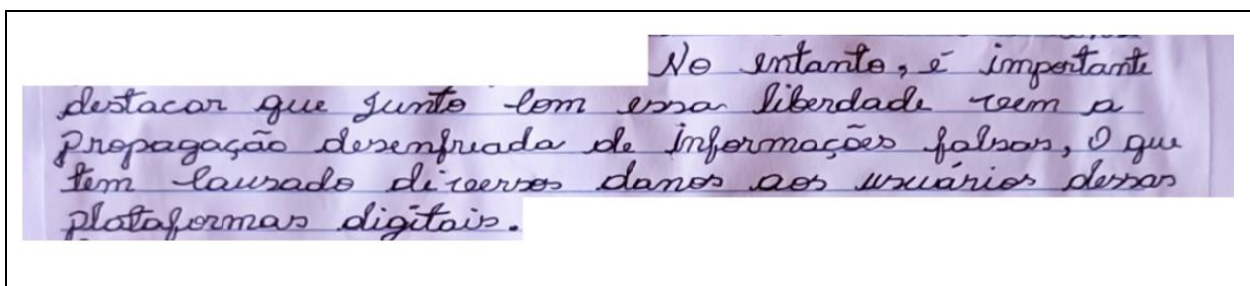 No entanto, é importante
destacar que junto com essa liberdade vem a
propagação desenfreada de informações falsas, o que
tem causado diversos danos aos usuários dessas
plataformas digitais.